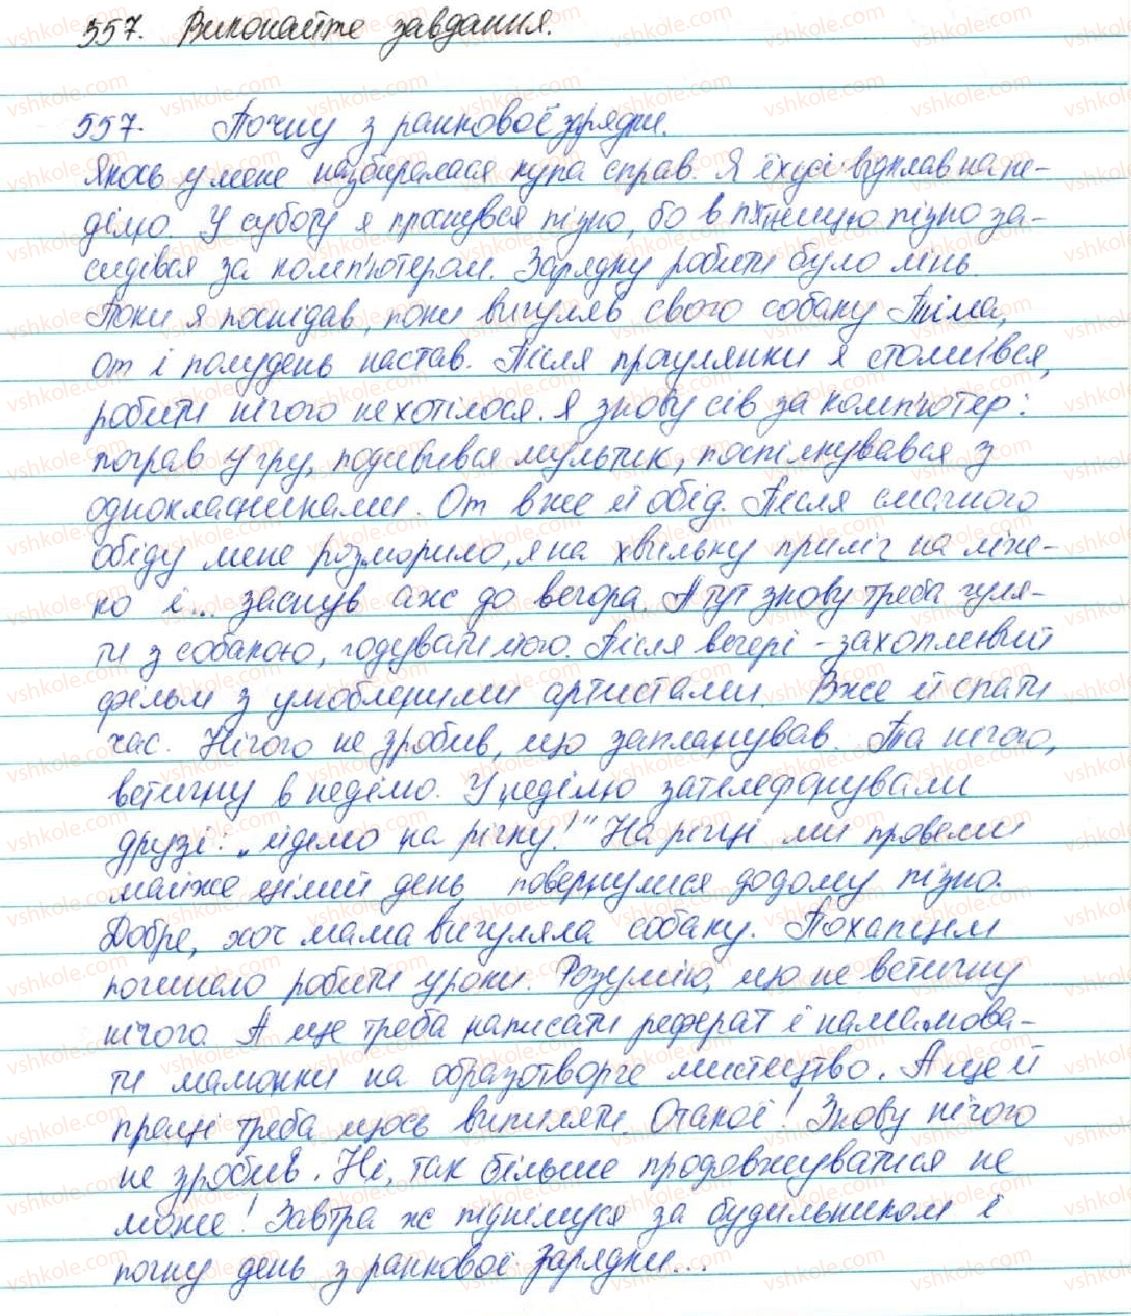 557. Виконайте завдання.
557. Почну з ранкової зарядки.
Якось у мене назбиралася купа справ. Я їх усі відклав на не-
ділю. У суботу я прокинувся пізно, бо в п'ятницю пізно за-
сидівся за комп'ютером. Зарядку робити було лінь.
Поки я поснідав, поки вигуляв свого собаку Тіма,
от і полудень настав. Після прогулянки я стомився,
робити нічого не хотілося. Я знову сів за комп'ютер:
пограв у гру, подивився мультик, поспілкувався з
однокласниками. От вже й обід. Після смачного
обіду мене розморило, я на хвильку приліг на ліж-
ко і... заснув аж до вечора. А тут знову треба гуля-
ти з собакою, годувати його. Після вечері - захопливий
фільм з улюбленими артистами. Вже й спати
час. Нічого не зробив, що запланував. Та нічого,
встигну в неділю. У неділю зателефонували
друзі: „йдемо на річку!" На річці ми провели
майже цілий день, повернулися додому пізно.
Добре, хоч мама вигуляла собаку. Похапцем
починаю робити уроки. Розумію, що не встигну
нічого. А ще треба написати реферат і намалюва-
ти малюнки на образотворче мистецтво. А ще й
праці треба щось випиляти. Отакої! Знову нічого
не зробив. Ні, так більше продовжуватися не
може! Завтра ж піднімуся за будильником і
почну день з ранкової зарядки...